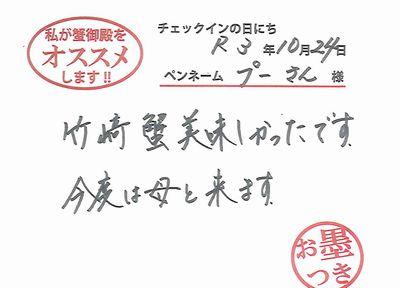 私が蟹御殿を
オススメ
します!!
チェックインの日にち
R3年10月24日
ペンネーム プーさん 様
竹崎蟹美味しかったです
今度は母と来ます
お墨
つき